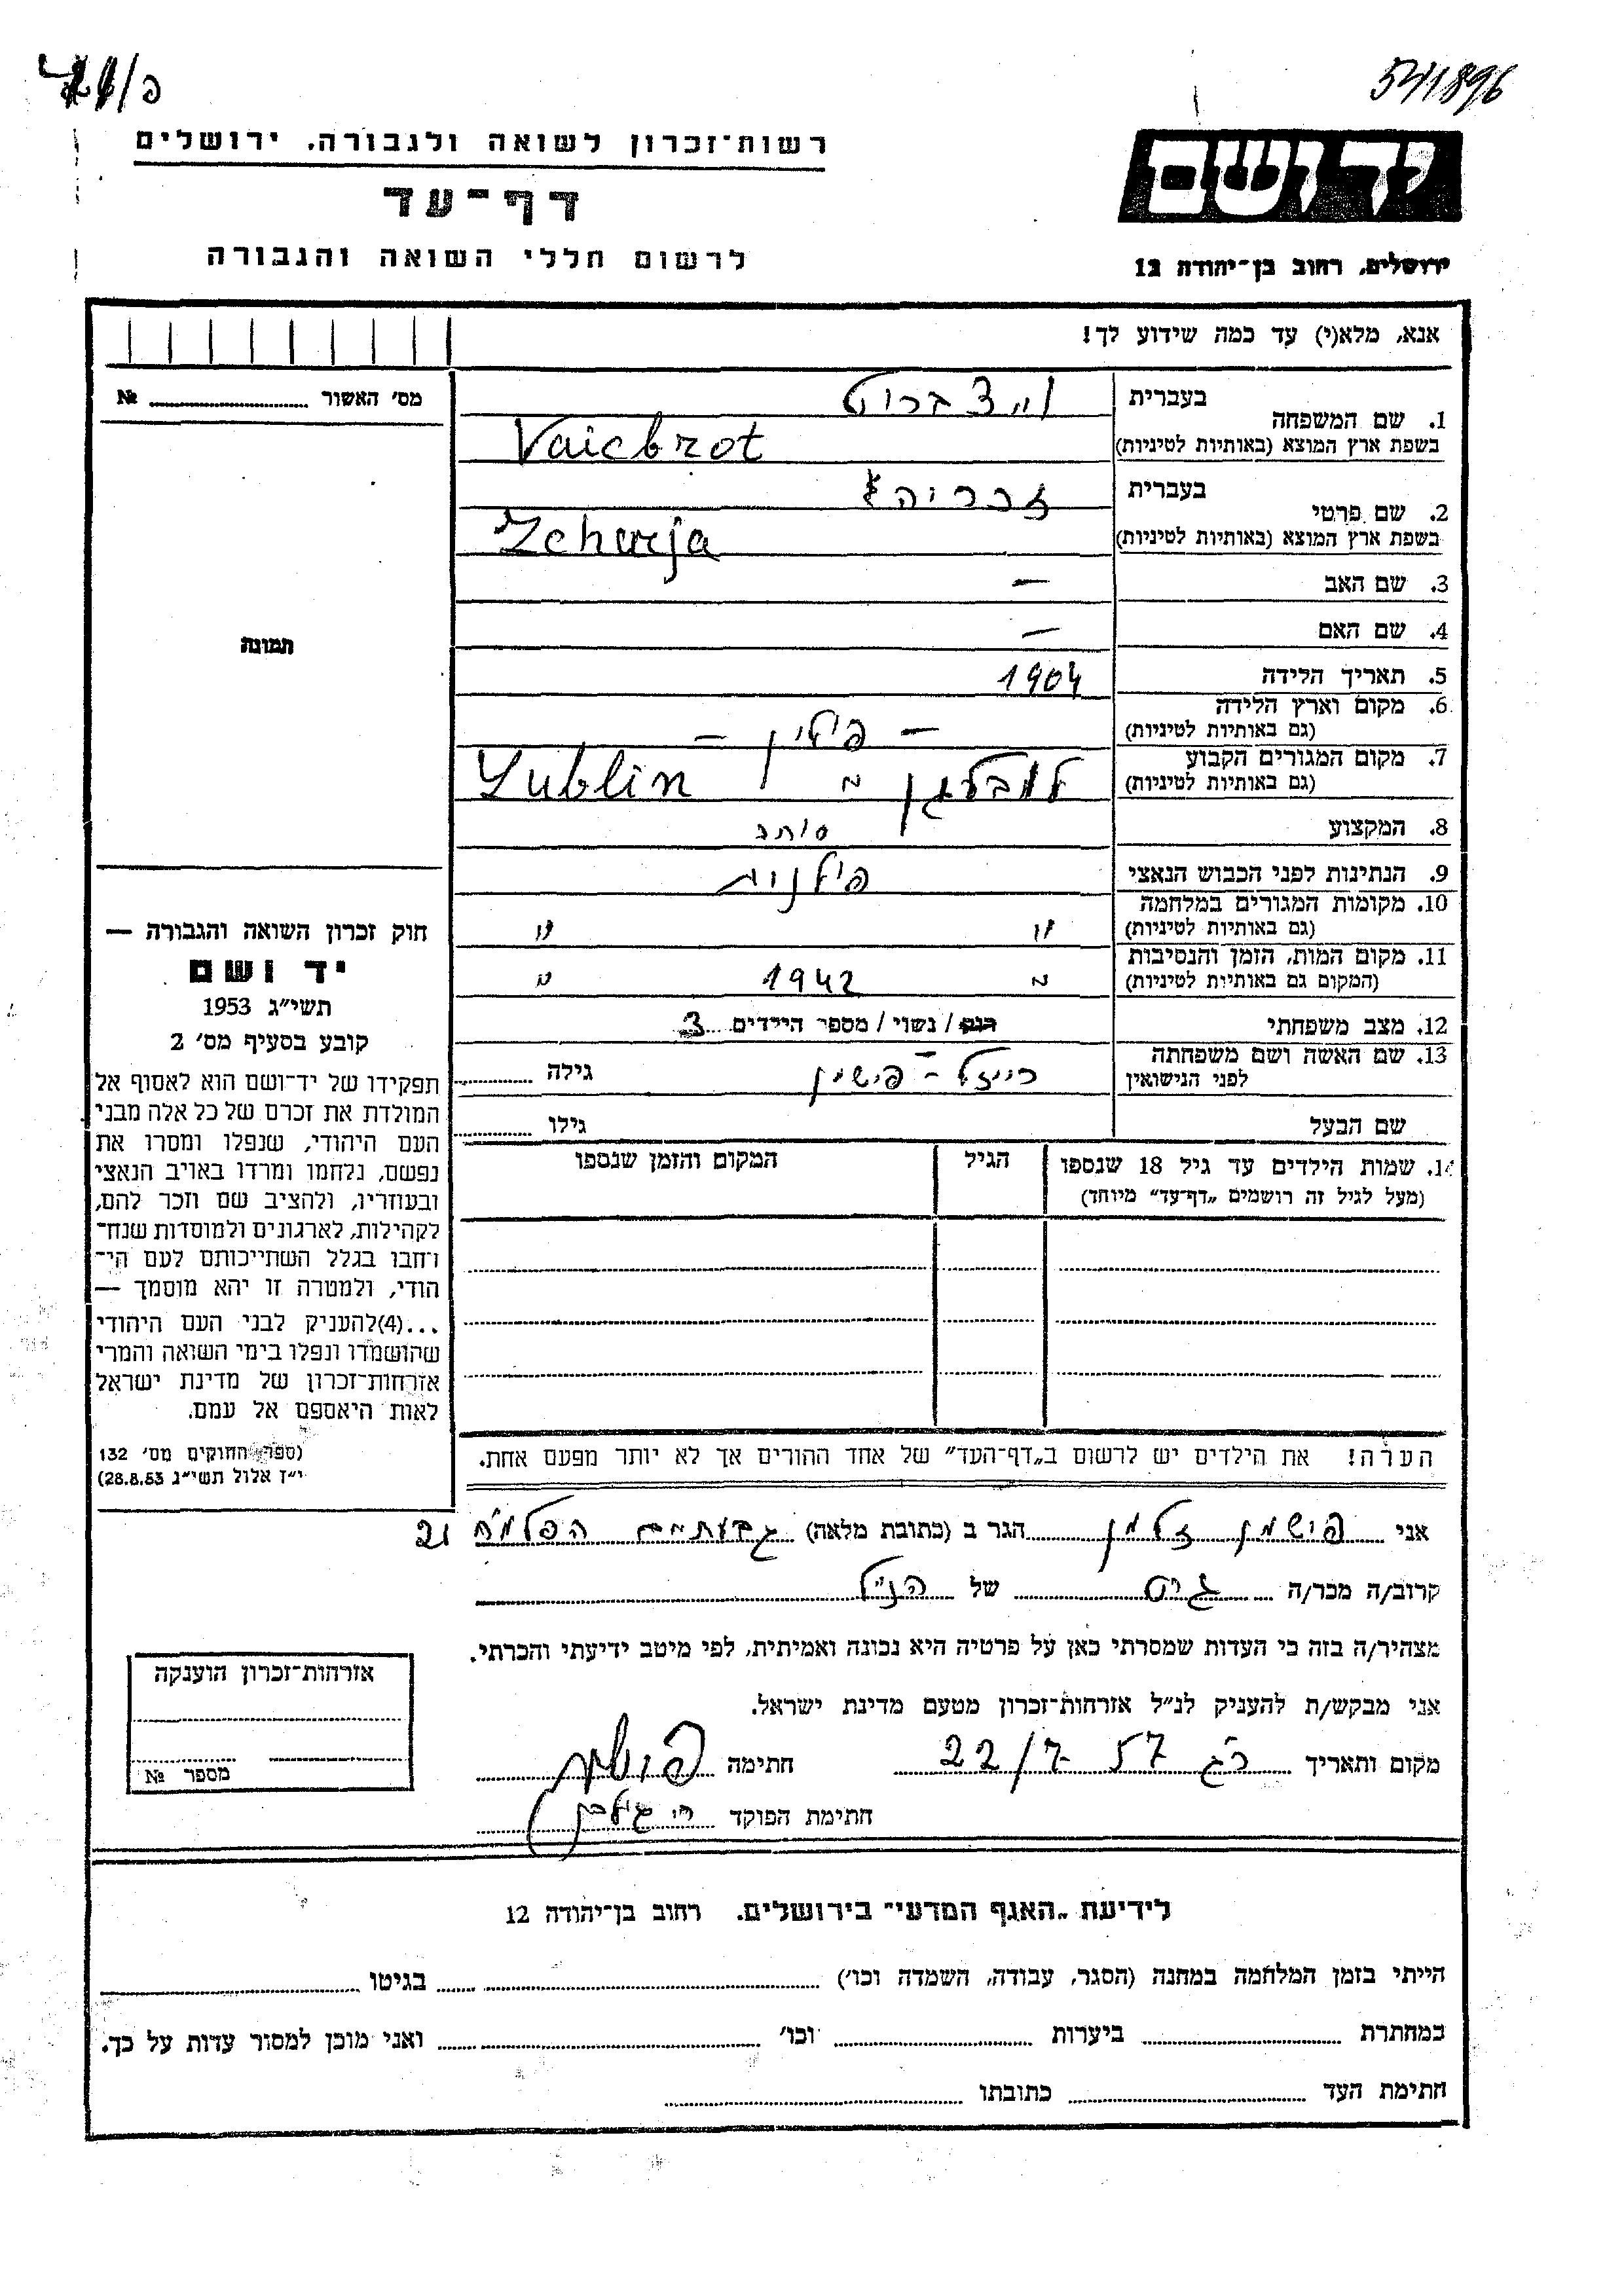 541896
רשות־זכרון לשואה ולגבורה. ירושלים
דף־עד
לרשום חללי השואה והגבורה
יד ושם
ירושלים, רחוב בן־יהודה 12
אנא, מלא(י) עד כמה שידוע לך!
מס׳ האשור № 
תמונה
1. שם המשפחה
בעברית וייצברוט
בשפת ארץ המוצא (באותיות לטיניות) Vaicbrot
2. שם פרטי
בעברית זכריה
בשפת ארץ המוצא (באותיות לטיניות) Zcharja
3. שם האב —
4. שם האם —
5. תאריך הלידה 1904
6. מקום וארץ הלידה
(גם באותיות לטיניות) — פולין —
7. מקום המגורים הקבוע
(גם באותיות לטיניות) לובלין Lublin
8. המקצוע סוחר
9. הנתינות לפני הכבוש הנאצי פולנית
10. מקומות המגורים במלחמה
(גם באותיות לטיניות) " "
11. מקום המות, הזמן והנסיבות
(המקום גם באותיות לטיניות) " 1942 "
12. מצב משפחתי רווק / נשוי / מספר הילדים 3
13. שם האשה ושם משפחתה
לפני הנישואין רייזל - פישמן גילה
שם הבעל גילו
14. שמות הילדים עד גיל 18 שנספו
(מעל לגיל זה רושמים „דף־עד״ מיוחד)
הגיל
המקום והזמן שנספו
הערה! את הילדים יש לרשום ב„דף־העד״ של אחד ההורים אך לא יותר מפעם אחת.
חוק זכרון השואה והגבורה —
יד ושם
תשי״ג 1953
קובע בסעיף מס׳ 2
תפקידו של יד־ושם הוא לאסוף אל
המולדת את זכרם של כל אלה מבני
העם היהודי, שנפלו ומסרו את
נפשם, נלחמו ומרדו באויב הנאצי
ובעוזריו, ולהציב שם וזכר להם,
לקהילות, לארגונים ולמוסדות שנח־
רחבו בגלל השתייכותם לעם הי־
הודי, ולמטרה זו יהא מוסמך —
...(4)להעניק לבני העם היהודי
שהושמדו ונפלו בימי השואה והמרי
אזרחות־זכרון של מדינת ישראל
לאות היאספם אל עמם.
(ספר החוקים מס׳ 132
י״ז אלול תשי״ג 28.8.53)
אני פישמן זלמן הגר ב (כתובת מלאה) גבעתיים הפלמ״ח 21
קרוב/ה מכר/ה גיס של הנ״ל
מצהיר/ה בזה כי העדות שמסרתי כאן על פרטיה היא נכונה ואמיתית, לפי מיטב ידיעתי והכרתי.
אני מבקש/ת להעניק לנ״ל אזרחות־זכרון מטעם מדינת ישראל.
מקום ותאריך רג 22/7 57 חתימה
חתימת הפוקד
אזרחות־זכרון הוענקה
מספר №
לידיעת „האגף המדעי״ בירושלים. רחוב בן־יהודה 12
הייתי בזמן המלחמה במחנה (הסגר, עבודה, השמדה וכו׳) בגיטו
במחתרת ביערות וכו׳ ואני מוכן למסור עדות על כך.
חתימת העד כתובתו